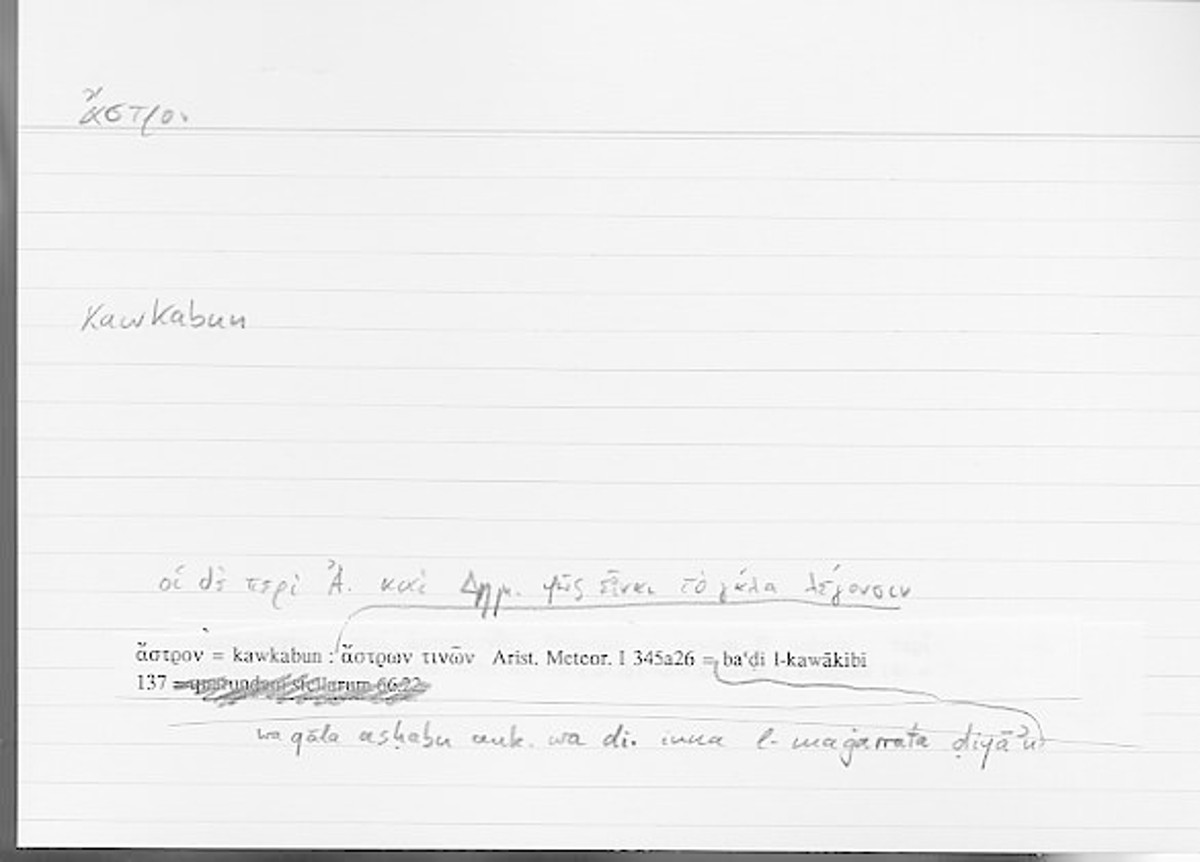 ἄστρον
Kawkabun
οἱ δὲ περὶ Ἀ. καὶ Δημ. φῶς εἶναι τὸ γάλα λέγουσιν
ἄστρον = kawkabun : ἄστρων τινῶν Arist. Meteor. I 345a26 = baʿḍi l-kawākibi
137 = quarundam stellarum 66:22
wa qāla aṣḥabu ank. wa di. inna l- maǧarrata ḍiyāʾu